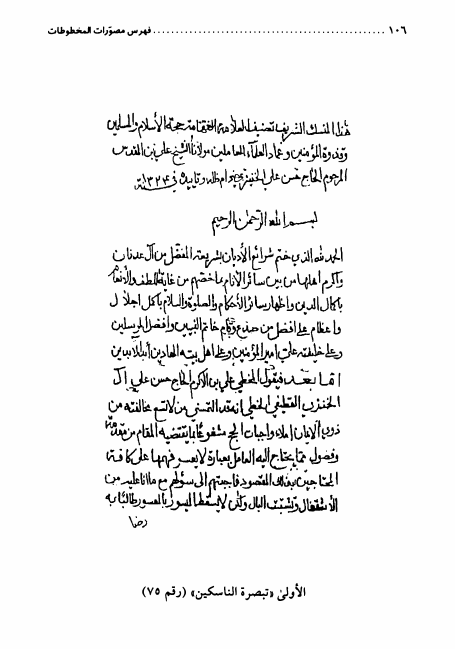 ١٠٦ ........ فهرس مصوّرات المخطوطات
هذا المنسك الشريف تصنيف العلامة الفهامة حجة الاسلام والمسلمين
وقدوة المؤمنين وعماد العلماء العاملين مولانا الشيخ علي بن المقدس
المرحوم الحاج حسن علي الخنيزي دام ظله في ١٣٢٤ سنة
بسم الله الرحمن الرحيم
الحمد لله الذي ختم شرائع الأديان بشريعته المفضل من آل عدنان
وأكرم اهلها من بين سائر الأنام بما خصهم من غاية اللطف والأنعام
باكمال الدين واظهار سائر الأحكام والصلوة والسلام باكمل اجلال
واعظام على افضل من صدع وقام خاتم النبيين وافضل المرسلين
وعلى خليفته علي امير المؤمنين وعلى اهل بيته الهادين
اما بعد فيقول الخطي علي بن الاكرم الحاج حسن علي آل
الخنيزي القطيفي الخطي انه قد التمسني من لا تسع مخالفته من
ذوي الايمان املاء واجبات الحج مشفوعا بما يقتضيه المقام من مقدمات
وفصول مما يحتاج اليه العامل بعبارة لا يعسر فهمها على كافة
المحتاجين بذلك المقصود فاجبتهم الى سؤلهم مع ما انا عليه من
الاشتغال وتشتت البال ولكن لا يسقط الميسور بالمعسور طالبا به
رضا
الأولى «تبصرة الناسكين» (رقم ٧٥)